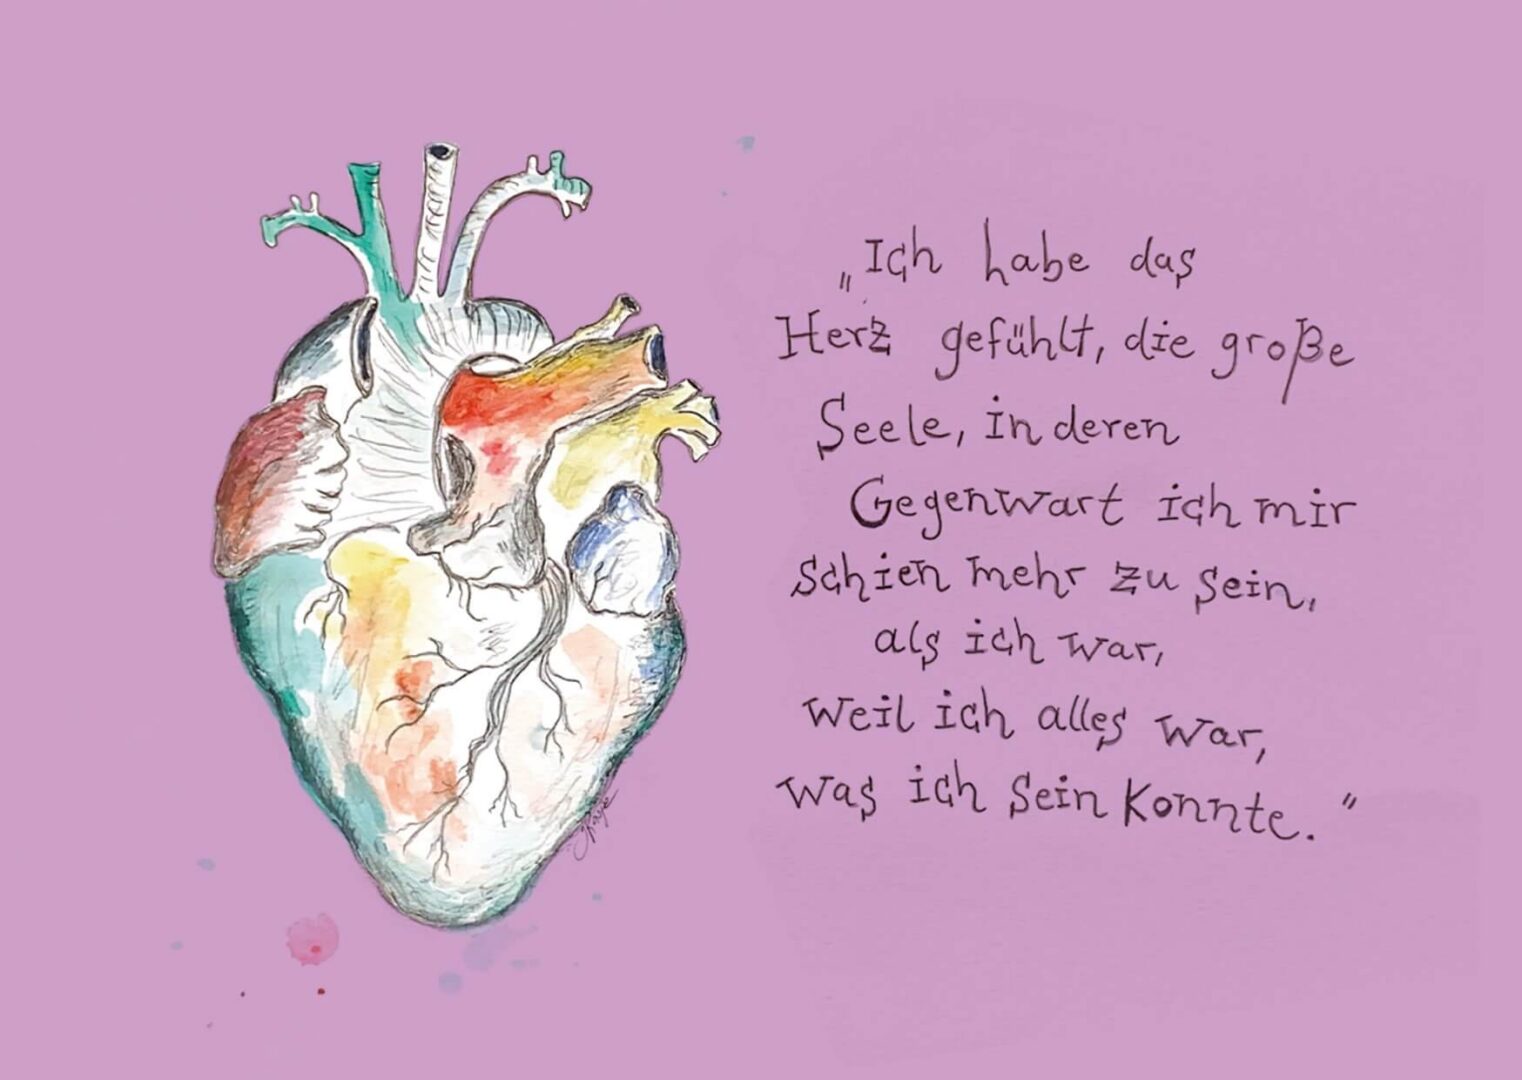 „Ich habe das
Herz gefühlt, die große
Seele, in deren
Gegenwart ich mir
schien mehr zu sein,
als ich war,
weil ich alles war,
was ich sein konnte."